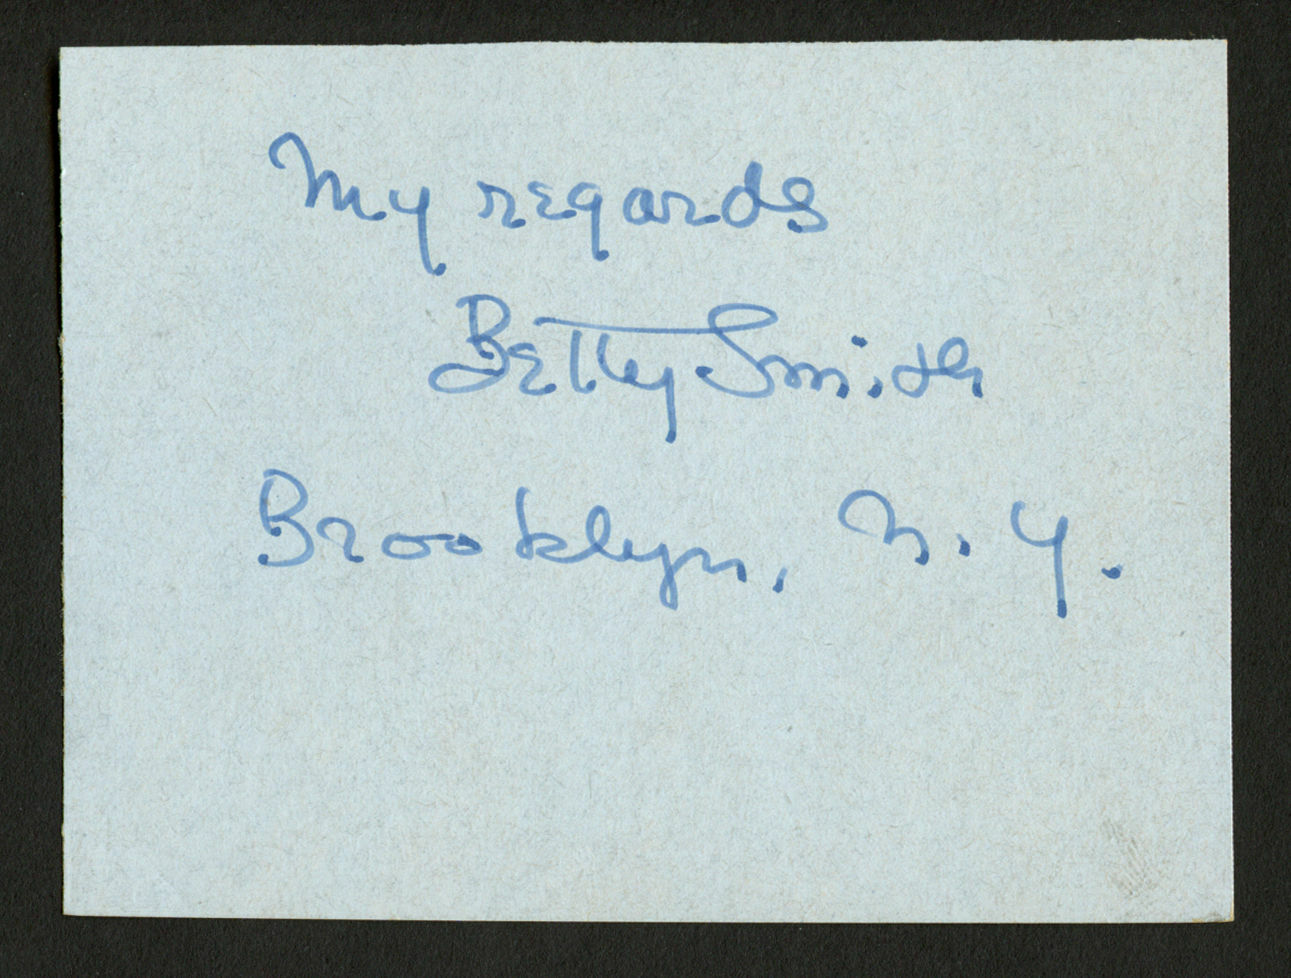 My regards
Betty Smith
Brooklyn, N.Y.